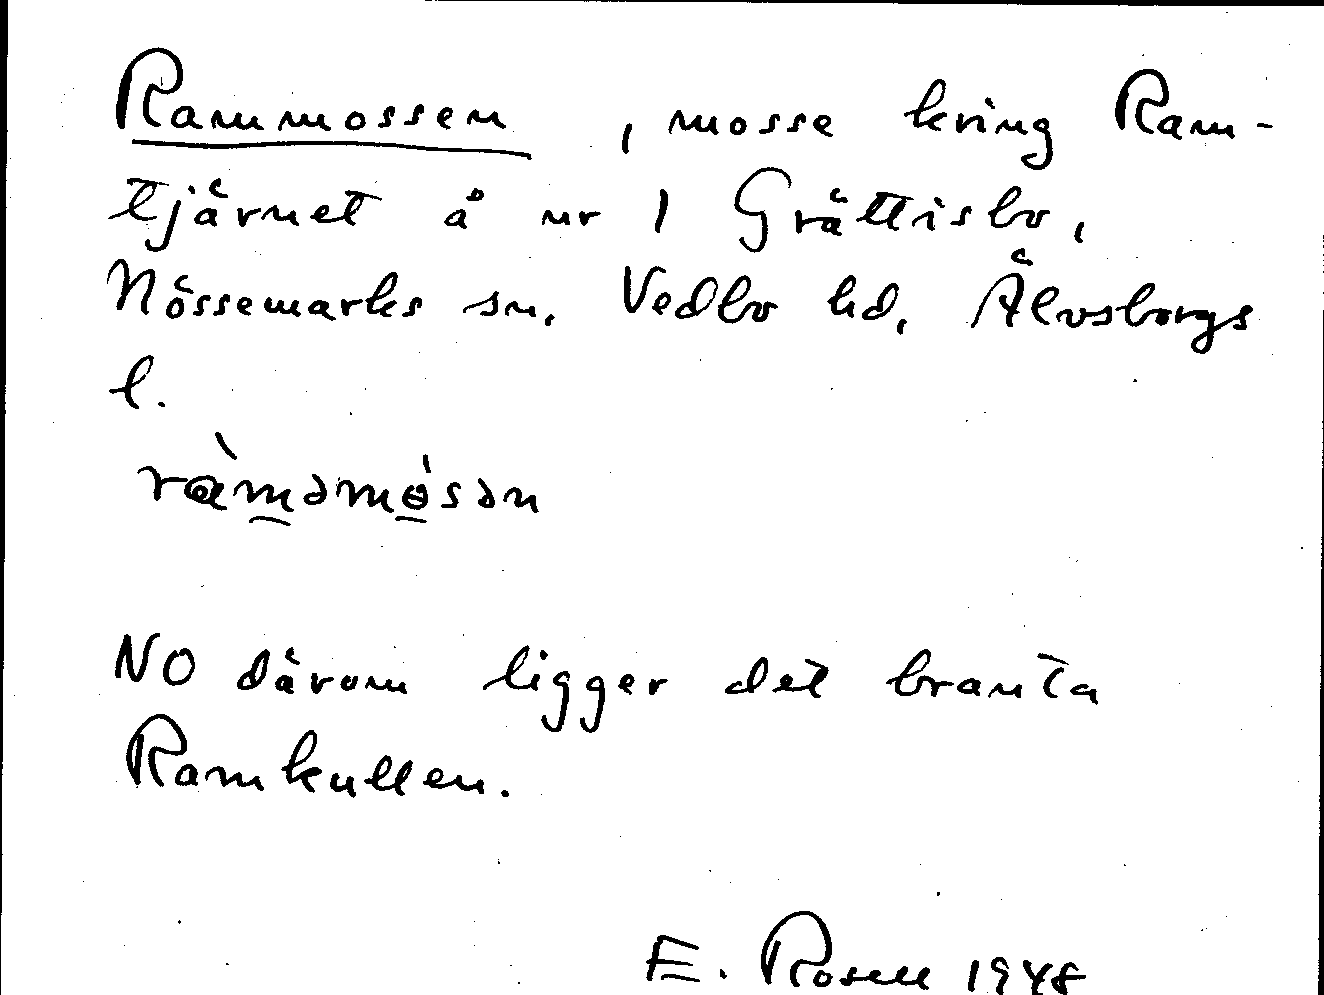 Rammossen, mosse kring Ram-
tjärnet å nr 1 Grättisbo,
Nössemarks sn. Vedbo hd, Älvsborgs
l.
ràmǝmɵ́sǝn
NO därom ligger det branta
Ramkullen.
E. Rosell 1948